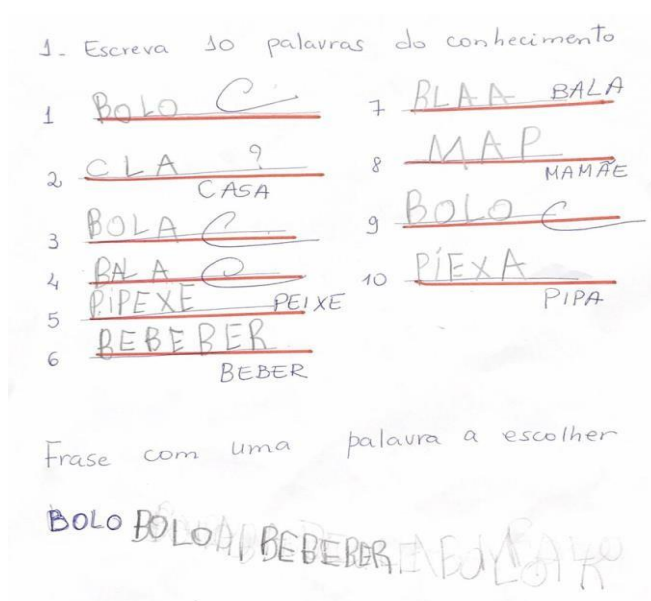 1. Escreva 10 palavras do conhecimento
1 BOLO C
2 CLA ?
CASA
3 BOLA C
4 BALA C
5 PIPEXE PEIXE
6 BEBEBER
BEBER
7 BLAA BALA
8 MAP
MAMÃE
9 BOLO C
10 PIEXA
PIPA
Frase com uma palavra a escolher
BOLO BOLO BEBEBER